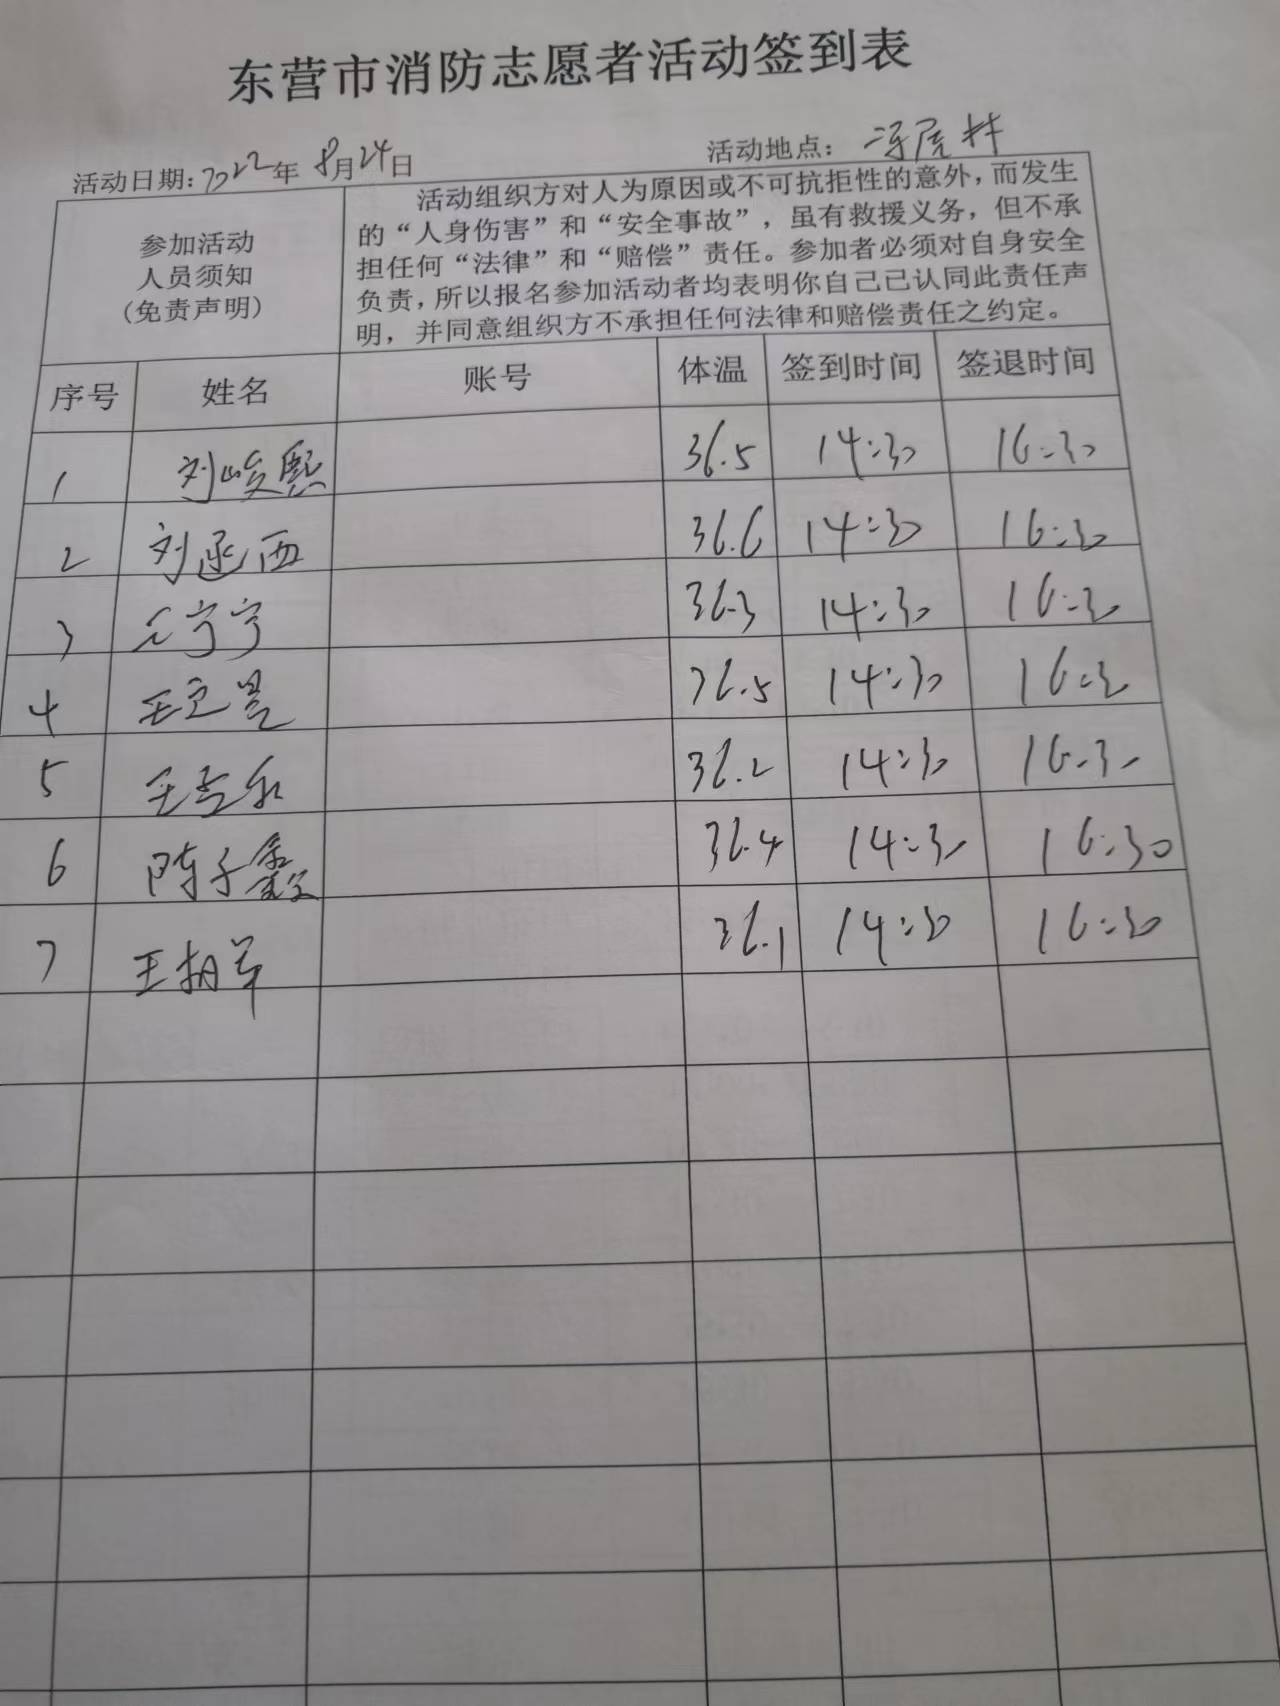 东营市消防志愿者活动签到表
活动日期:2022年8月24日 活动地点:
参加活动
人员须知
(免责声明)
活动组织方对人为原因或不可抗拒性的意外,而发生
的“人身伤害”和“安全事故”,虽有救援义务,但不承
担任何“法律”和“赔偿”责任。参加者必须对自身安全
负责,所以报名参加活动者均表明你自己已认同此责任声
明,并同意组织方不承担任何法律和赔偿责任之约定。
序号 姓名 账号 体温 签到时间 签退时间
1 刘峻熙 36.5 14:30 16:30
2 刘函西 36.6 14:30 16:30
3 宁宁 36.3 14:30 16:30
4 王 36.5 14:30 16:30
5 王 36.2 14:30 16:30
6 陈子鑫 36.4 14:30 16:30
7 王 36.1 14:30 16:30